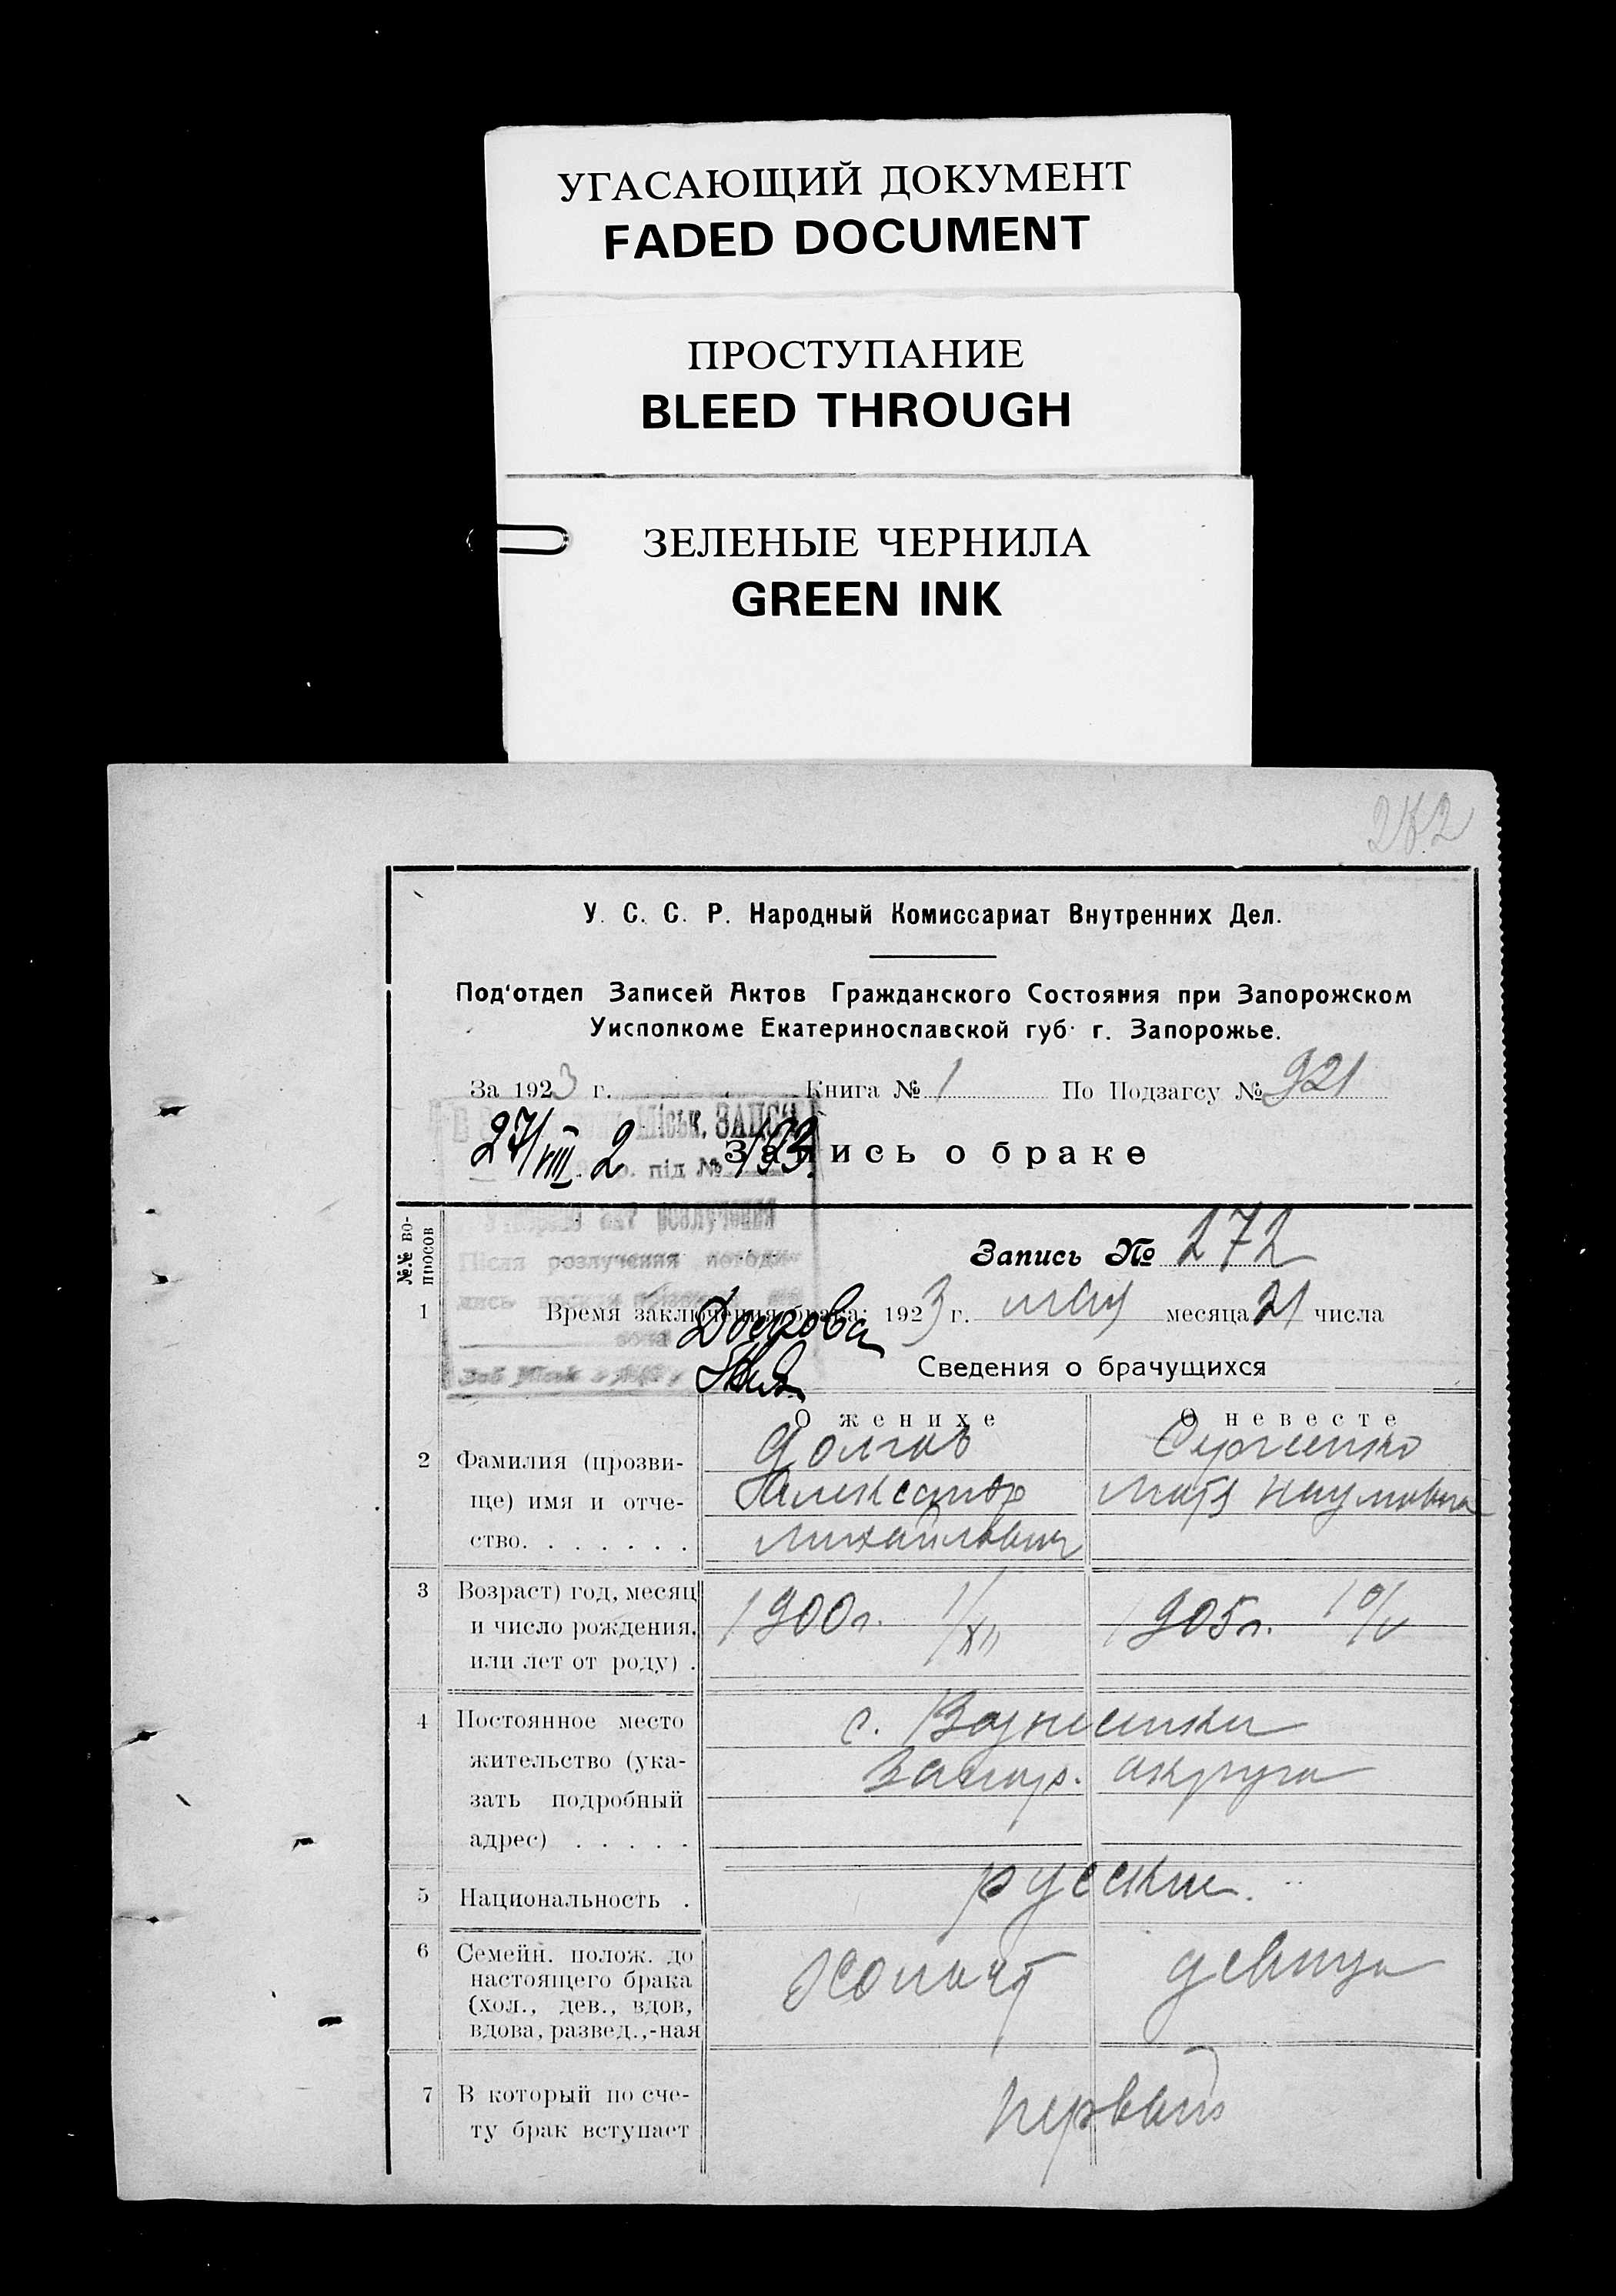 УГАСАЮЩИЙ ДОКУМЕНТ
FADED DOCUMENT
ПРОСТУПАНИЕ
BLEED THROUGH
ЗЕЛЕНЫЕ ЧЕРНИЛА
GREEN INK
У. С. С. Р. Народный Комиссариат Внутренних Дел.
Под'отдел Записей Актов Гражданского Состояния при Запорожском
Уисполкоме Екатеринославской губ. г. Запорожье.
За 1923 г. Книга № 1 По Подзагсу № 921
міськ. ЗАПСІ
27/VIII 2 під №
Запись о браке
акт розлучення
№№ вопросов
Запись № 272
Після розлучення
1 Время заключения брака: 1923 г. мая месяца 21 числа
Сведения о брачущихся
О женихе О невесте
2 Фамилия (прозви- Долгов
ще) имя и отче- Александр Наумовна
ство. . . . . . . Михайлович
3 Возраст) год, месяц
и число рождения, 1900 г. 1/XII 1905 г. 10/V
или лет от роду) .
4 Постоянное место с. Вознесенки
жительство (ука- Запор. округа
зать подробный
адрес) . . . . .
5 Национальность . русские.
6 Семейн. полож. до
настоящего брака холост девица
(хол., дев., вдов,
вдова, развед.,-ная
7 В который по сче- первый
ту брак вступает